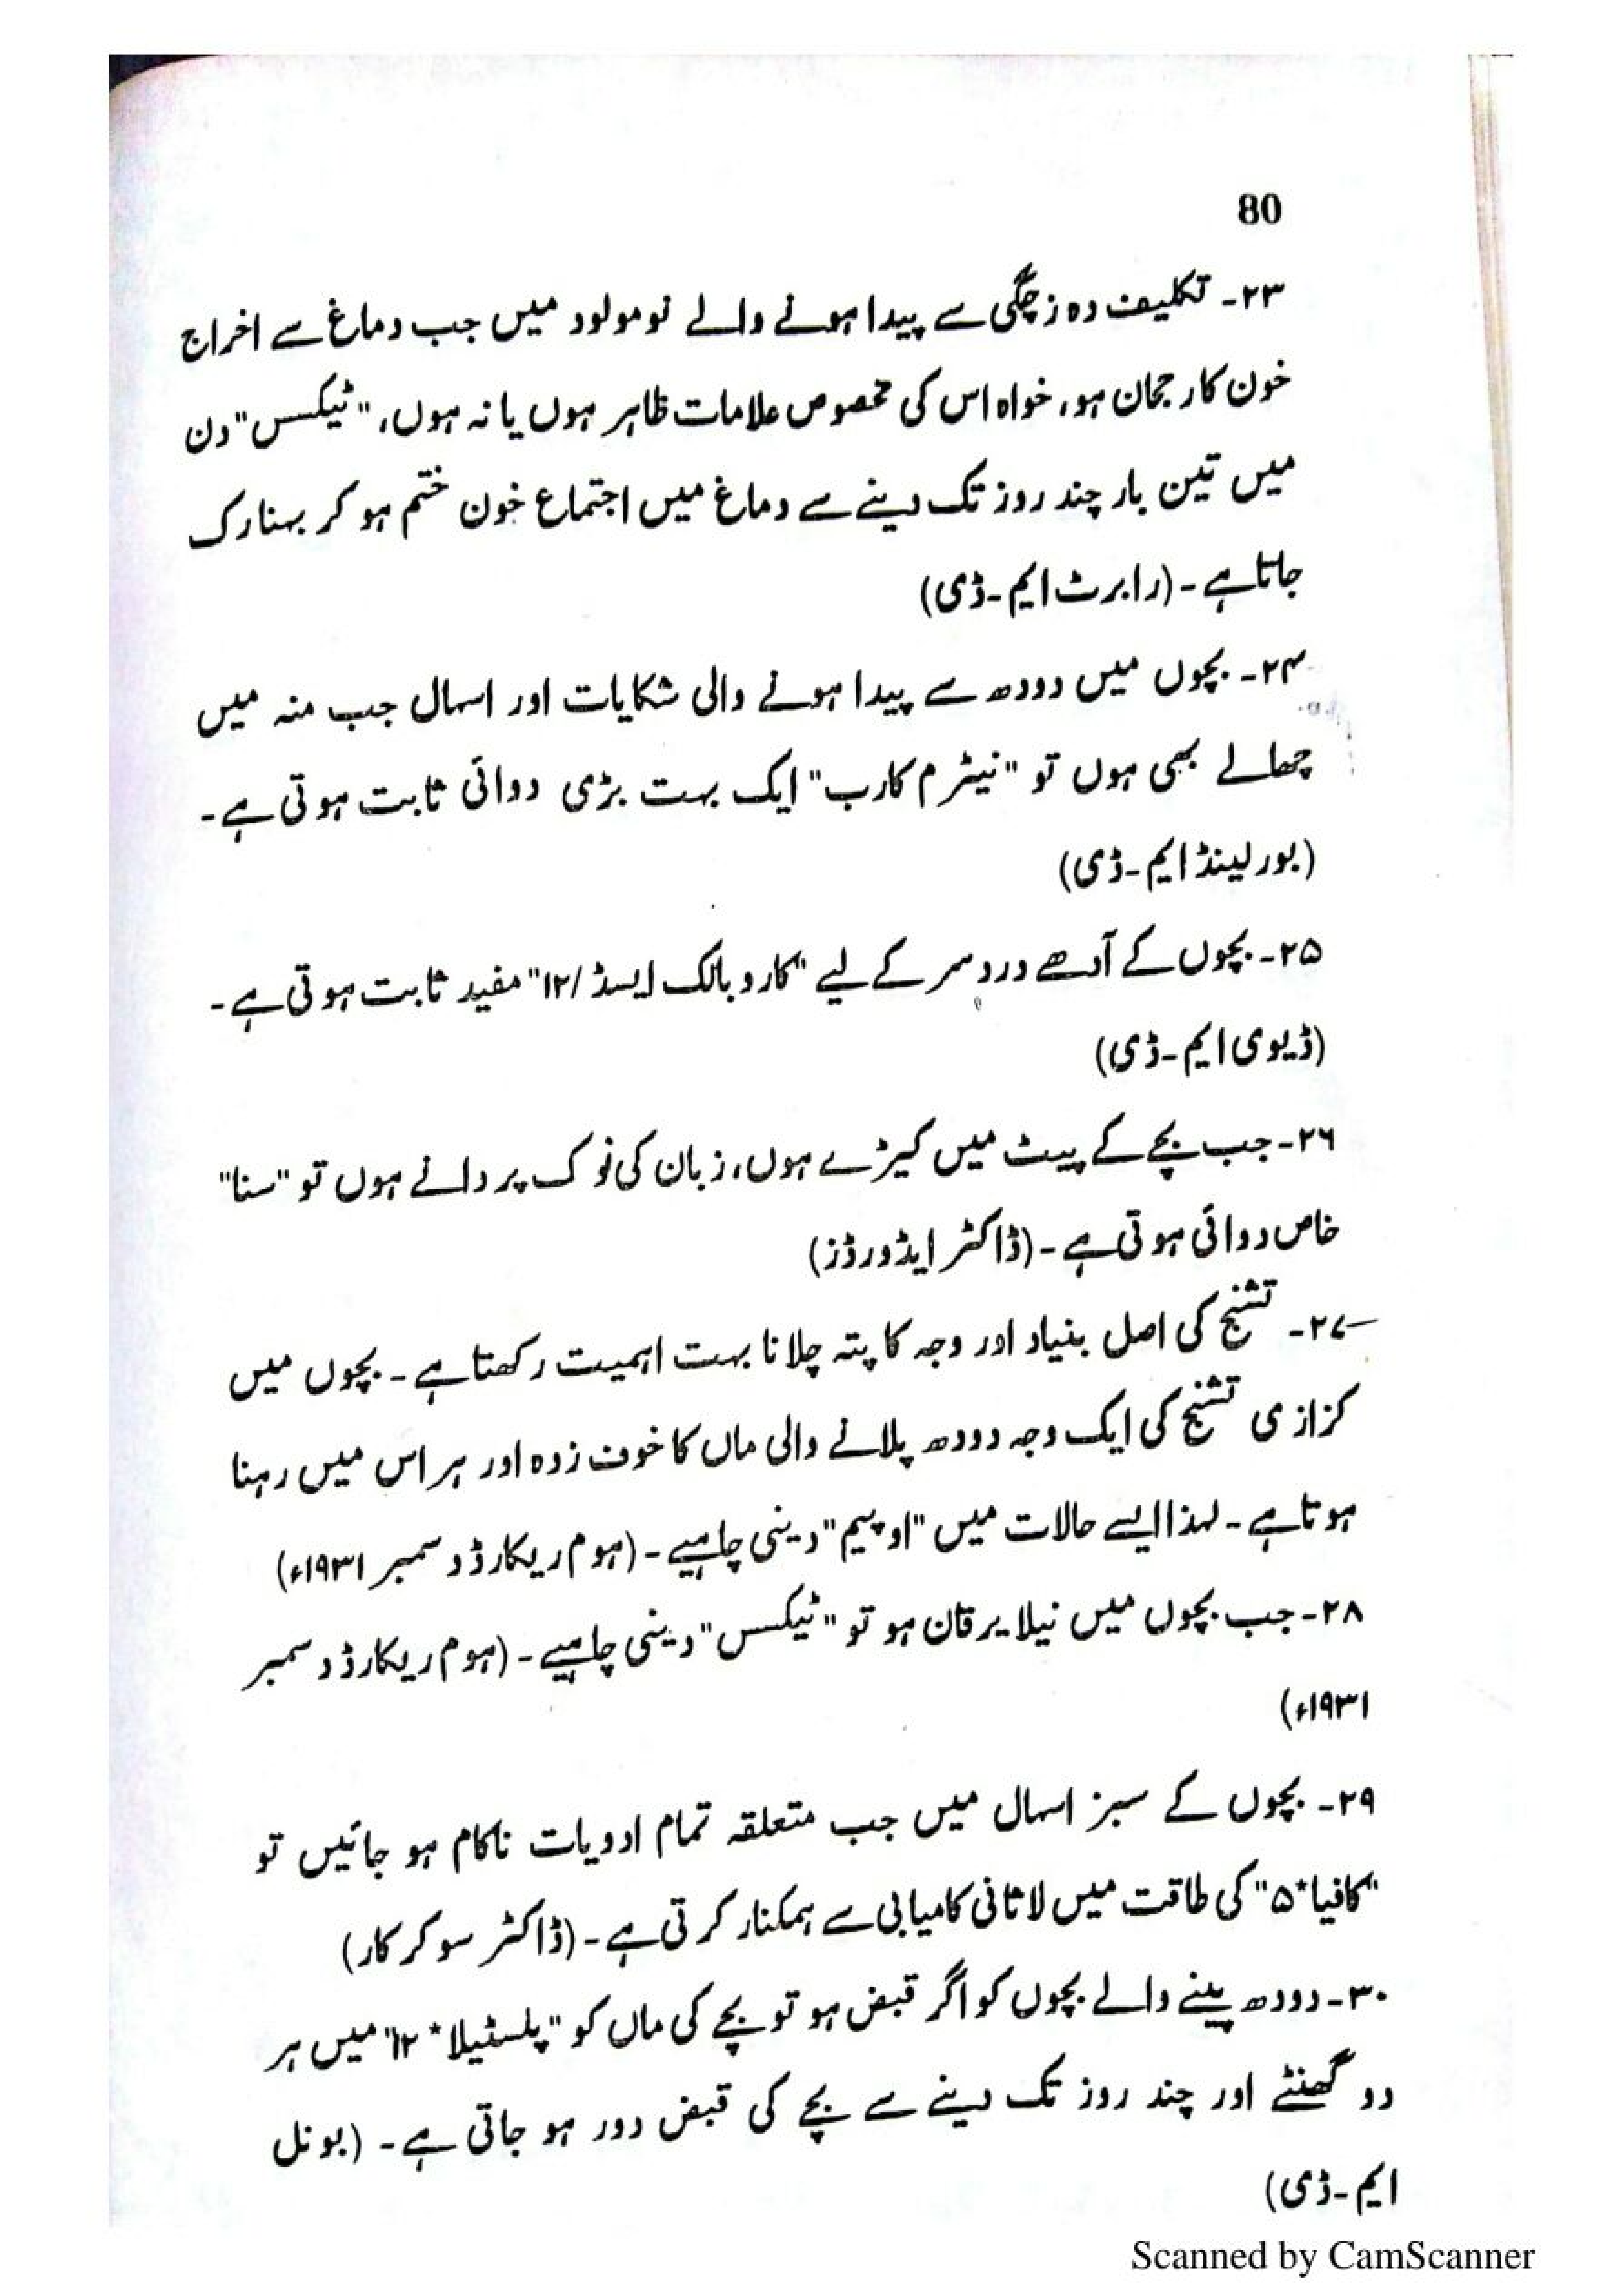 80
۲۳۔ تکلیف دہ زچگی سے پیدا ہونے والے نومولود میں جب دماغ سے اخراج
خون کا رجحان ہو، خواہ اس کی مخصوص علامات ظاہر ہوں یا نہ ہوں، "ٹیکسس" دن
میں تین بار چند روز تک دینے سے دماغ میں اجتماع خون ختم ہو کر بہنا رک
جاتا ہے۔ (رابرٹ ایم۔ڈی)
۲۴۔ بچوں میں دودھ سے پیدا ہونے والی شکایات اور اسہال جب منہ میں
چھالے بھی ہوں تو "نیٹرم کارب" ایک بہت بڑی دوائی ثابت ہوتی ہے۔
(بورلینڈ ایم۔ڈی)
۲۵۔ بچوں کے آدھے درد سر کے لیے "کاروبالک ایسڈ /۱۲" مفید ثابت ہوتی ہے۔
(ڈیوی ایم۔ڈی)
۲۶۔ جب بچے کے پیٹ میں کیڑے ہوں، زبان کی نوک پر دانے ہوں تو "سنا"
خاص دوائی ہوتی ہے۔ (ڈاکٹر ایڈورڈز)
۲۷۔ تشنج کی اصل بنیاد اور وجہ کا پتہ چلانا بہت اہمیت رکھتا ہے۔ بچوں میں
کزازی تشنج کی ایک وجہ دودھ پلانے والی ماں کا خوف زدہ اور ہراس میں رہنا
ہوتا ہے۔ لہذا ایسے حالات میں "اوپیم" دینی چاہیے۔ (ہوم ریکارڈ دسمبر ۱۹۳۱ء)
۲۸۔ جب بچوں میں نیلا یرقان ہو تو "ٹیکسس" دینی چاہیے۔ (ہوم ریکارڈ دسمبر
۱۹۳۱ء)
۲۹۔ بچوں کے سبز اسہال میں جب متعلقہ تمام ادویات ناکام ہو جائیں تو
"کافیا*۵" کی طاقت میں لاثانی کامیابی سے ہمکنار کرتی ہے۔ (ڈاکٹر سوکرکار)
۳۰۔ دودھ پینے والے بچوں کو اگر قبض ہو تو بچے کی ماں کو "پلسٹیلا*۱۲" میں ہر
دو گھنٹے اور چند روز تک دینے سے بچے کی قبض دور ہو جاتی ہے۔ (بونل
ایم۔ڈی)
Scanned by CamScanner